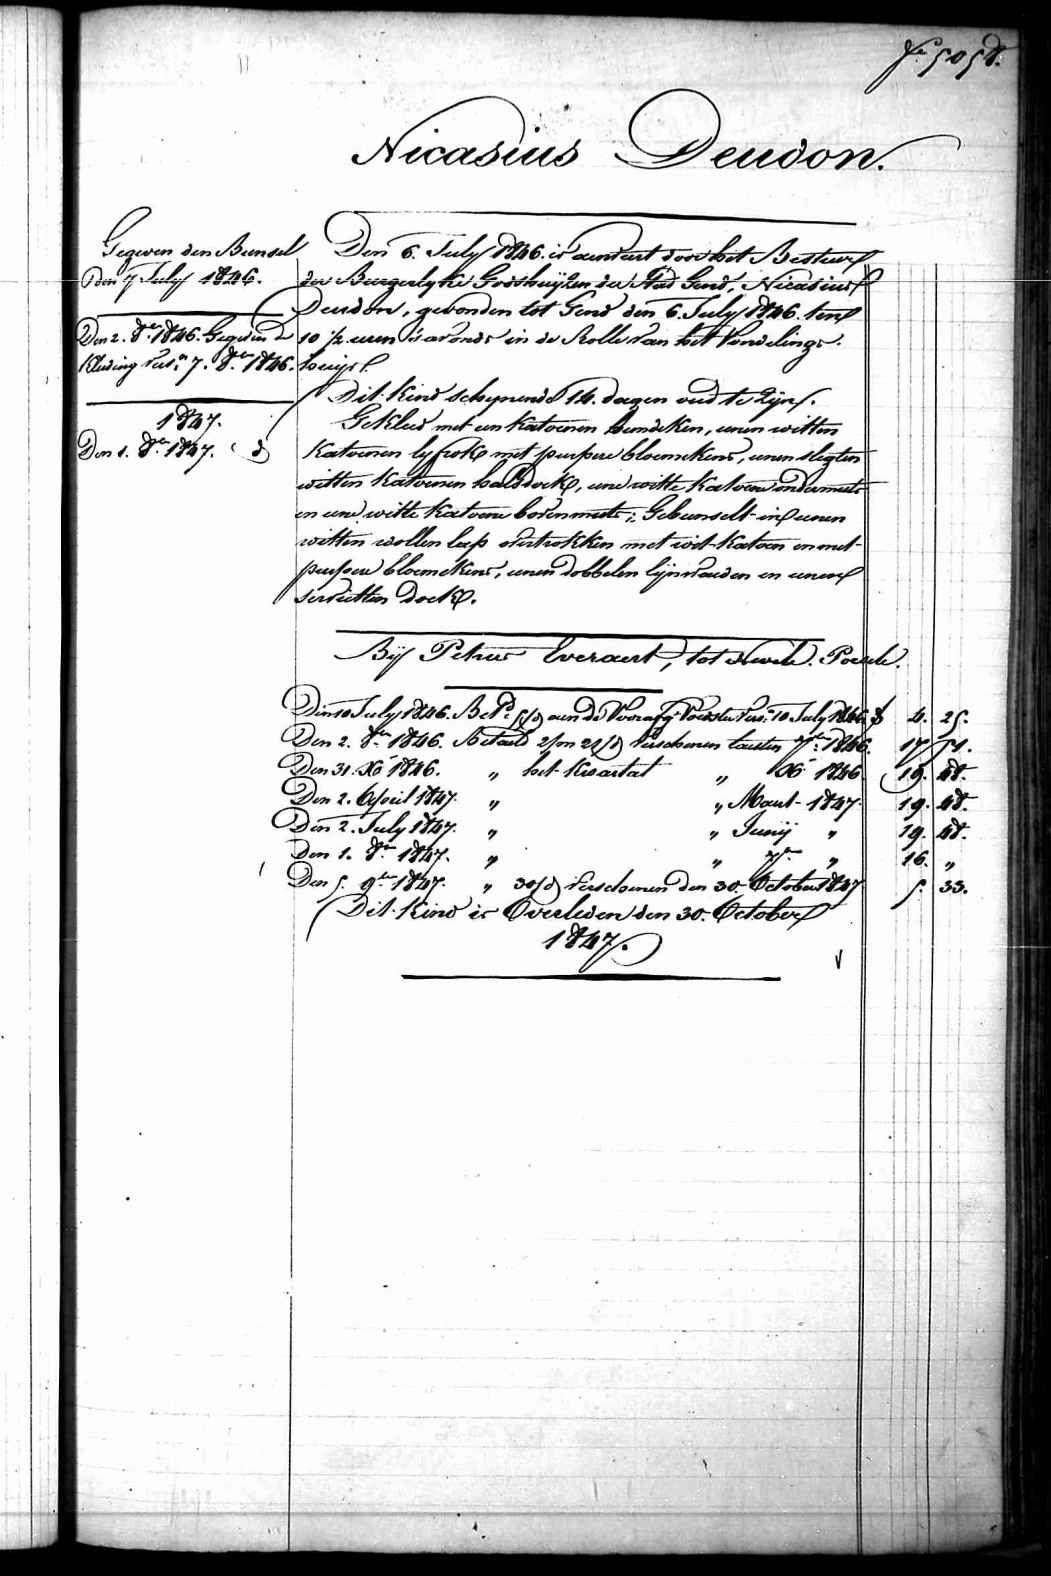 fo 5058.
Nicasius Deudon.
Gegeven den Bunsel
den 7 July 1846.
Den 2. 8er 1846. Gegeven de
Kleeding vers. 7. 8er 1846.
1847.
Den 1. 8er 1847. d
Den 6. July 1846. is aenveert door het Bestuer
der Burgerlyke Godshuijzen der Stad Gend, Nicasius
Deudon, gevonden tot Gend den 6. July 1846. ten
10 1/2 uren 's avonds in de Rolle van het Vondelings-
huijs.
Dit kind schynende 14. dagen oud te zijn.
Gekleed met een katoenen hemdeken, eenen witten
katoenen lyfrok met purpere bloemekens, eenen slegten
witten katoenen halsdoek, eene witte katoene ondermuts
en eene witte katoene bovenmuts; Gebunselt in eenen
witten wollen lap overtrokken met wit katoen en met
purpere bloemekens, eenen dobbelen lijnwaeden en eenen
servietten doek.
Bij Petrus Everaert, tot Poucke.
Den 10 July 1846. Betd aen de Voorafg. Voedster vers. 10 July 1846. 4. 25.
Den 2. 8er 1846. Betaeld 2/m 21/d Verschenen laesten 7ber 1846. 17 71.
Den 31. Xb 1846. „ het kwartael „ Xb 1846 19. 48.
Den 2. April 1847. „ „ Maert 1847. 19. 48.
Den 2. July 1847. „ „ Junij „ 19. 48.
Den 1. 8er 1847. „ „ 7er „ 16. „
Den 5. 9er 1847. „ 30/d Verschenen den 30. October 1847 5. 33.
Dit kind is Overleden den 30. October
1847.